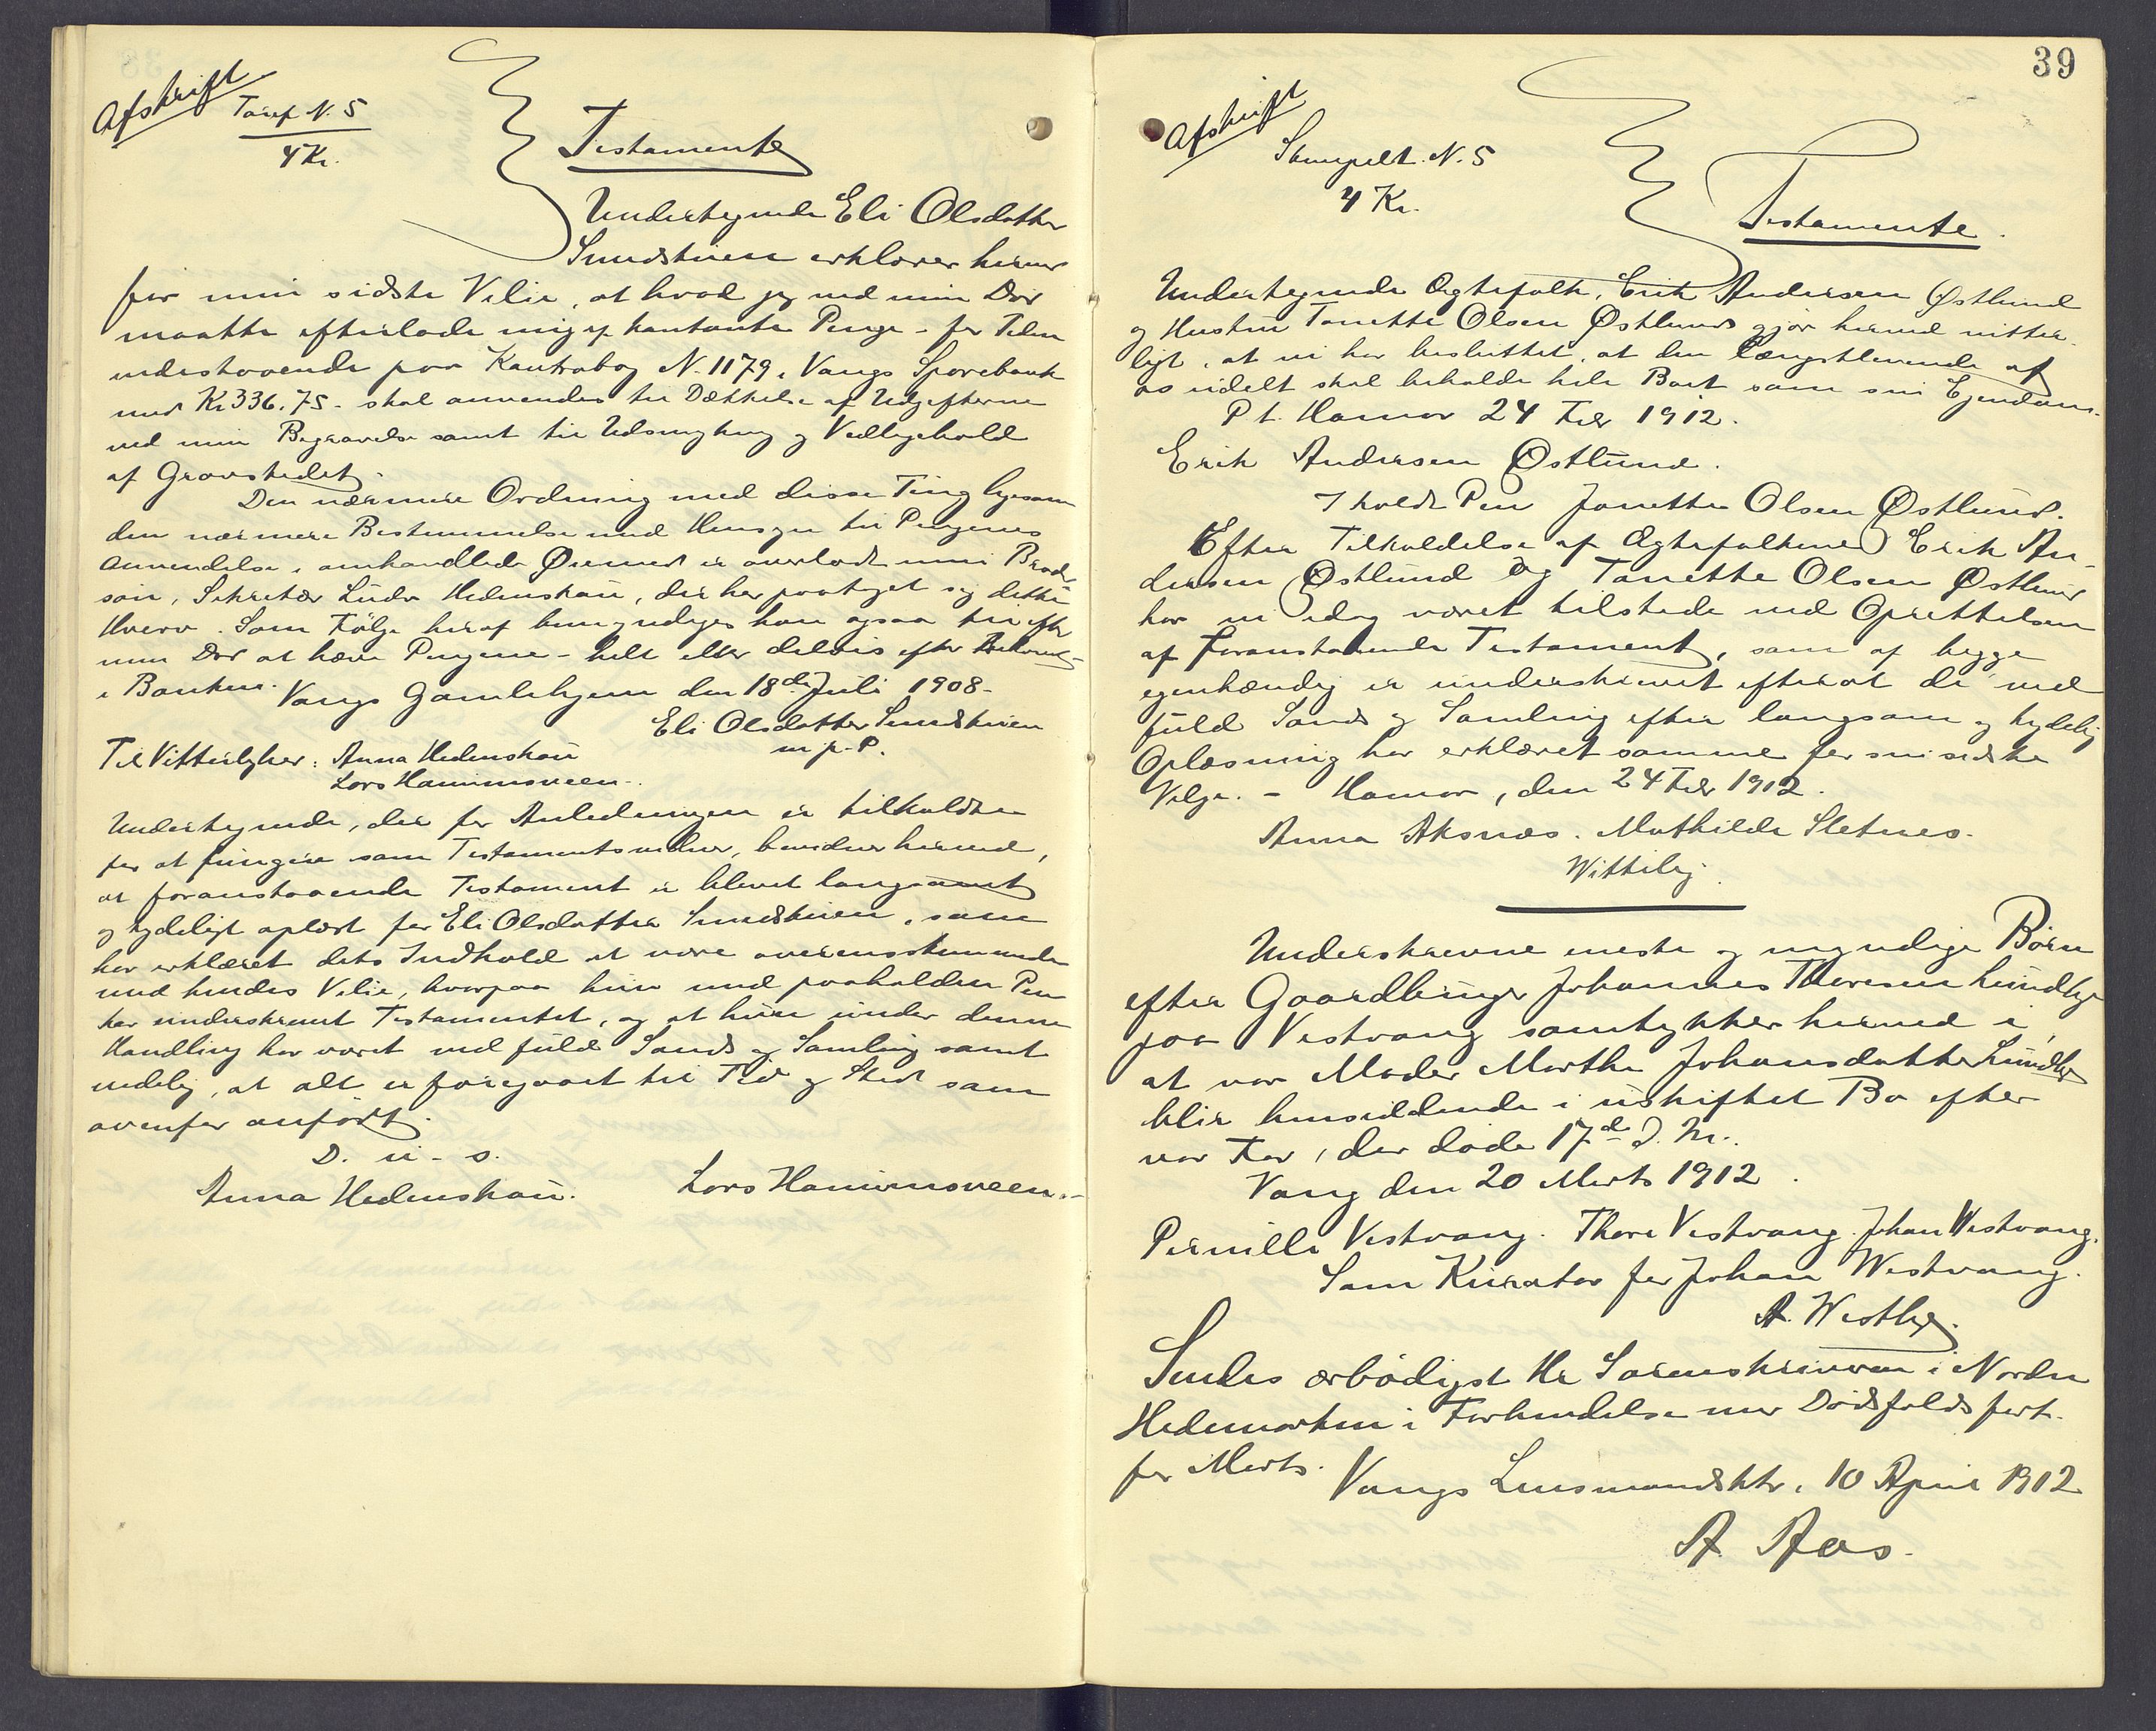 Afskrift
Taxf N. 5
4 Kr.
Testamente
Undertegnede Eli Olsdatter
Sundstuen erklærer herved
for min sidste Vilie, at hvad jeg ved min Død
maatte efterlade mig af kontante Penge - for Tiden
indestaaende paa Kontrabog N. 1179 i Vangs Sparebank
med Kr 336.75 - skal anvendes til Dækkelse af Udgifterne
ved min Begravelse samt til Udsmykning og Vedligehold
af Gravstedet.
Den nærmere Ordning med disse Ting ligesom
den nærmere Bestemmelse med Hensyn til Pengenes
Anvendelse i omhandlede Øiemed er overladt min Broder-
søn, Sekretær Ludv Hedenskau, der har paataget sig dette
Hverv. Som Følge heraf bemyndiges han ogsaa til efter
min Død at hæve Pengene - helt eller delvis efter
i Banken. Vangs Gamlehjem den 18de Juli 1908 -
Eli Olsdatter Sundstuen
m. p. P.
Til Vitterlighed: Anna Hedenskau
Lars Hammsveen.
Undertegnede, der for Anledningen er tilkaldte
for at fungere som Testamentsvidner, bevidner herved,
at foranstaaende Testament er blevet langsomt
og tydeligt oplæst for Eli Olsdatter Sundstuen, som
har erklæret dets Indhold at være overensstemmende
med hendes Vilie, hvorpaa hun med paaholden Pen
har underskrevet Testamentet, og at hun under denne
Handling har været ved fuld Sands og Samling samt
endelig, at alt er foregaaet til Tid og Sted som
ovenfor anført.
D. u. s.
Anna Hedenskau. Lars Hammsveen. -
39
Afskrift
Stempelt. N. 5
4 Kr.
Testamente.
Undertegnede Ægtefolk, Erik Andersen Østlund
og Hustru Tanette Olsen Østlund gjør herved vitter-
ligt, at vi har besluttet, at den Længstlevende af
os udelt skal beholde hele Boet som sin Ejendom.
P t. Hamar 24 Febr 1912.
Erik Andersen Østlund.
I holdt Pen Janette Olsen Østlund.
Efter Tilkaldelse af Ægtefolkene Erik An-
dersen Østlund og Tanette Olsen Østlund
har vi idag været tilstede ved Oprettelsen
af foranstaaende Testament, som af begge
egenhændig er underskrevet efterat de ved
fuld Sands og Samling efter langsom og tydelig
Oplæsning har erklæret samme for sin sidste
Vilje. - Hamar, den 24 Febr 1912.
Anna Aksnæs. Mathilde Sletnes.
Vitterlig
Underskrevne eneste og myndige Børn
efter Gaardbruger Johannes Thoresen Lundby
paa Vestvang samtykker herved i,
at vor Moder Marthe Johansdatter Lundby
blir hensiddende i uskiftet Bo efter
vor Far, der døde 17de d. M.
Vang den 20 Marts 1912.
Pernille Vestvang. Thore Vestvang. Johan Westvang.
Som Kurator for Johan Westvang.
A. Westbye.
Sendes ærbødigst Hr Sorenskriveren i Nordre
Hedemarken i Forbindelse med Dødsfaldsfort.
for Marts.
Vangs Lensmandsktr. 10 April 1912
A. Aas.